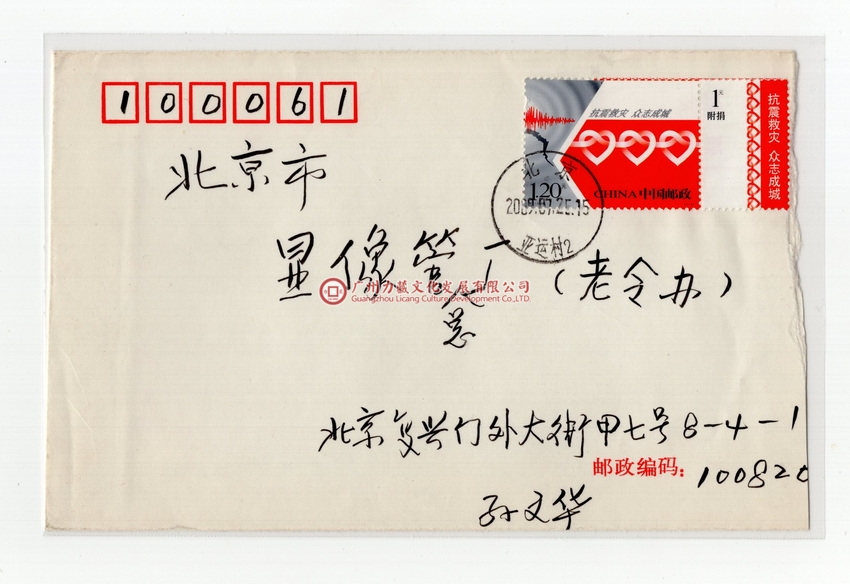 100061
抗震救灾 众志成城
1元
附捐
抗震救灾 众志成城
1.20元
CHINA 中国邮政
北京
亚运村2
北京市
显像管厂(老令办)
总
广州力藏文化发展有限公司
Guangzhou Licang Culture Development Co.,LTD.
北京复兴门外大街甲七号8-4-1
邮政编码:
孙文华